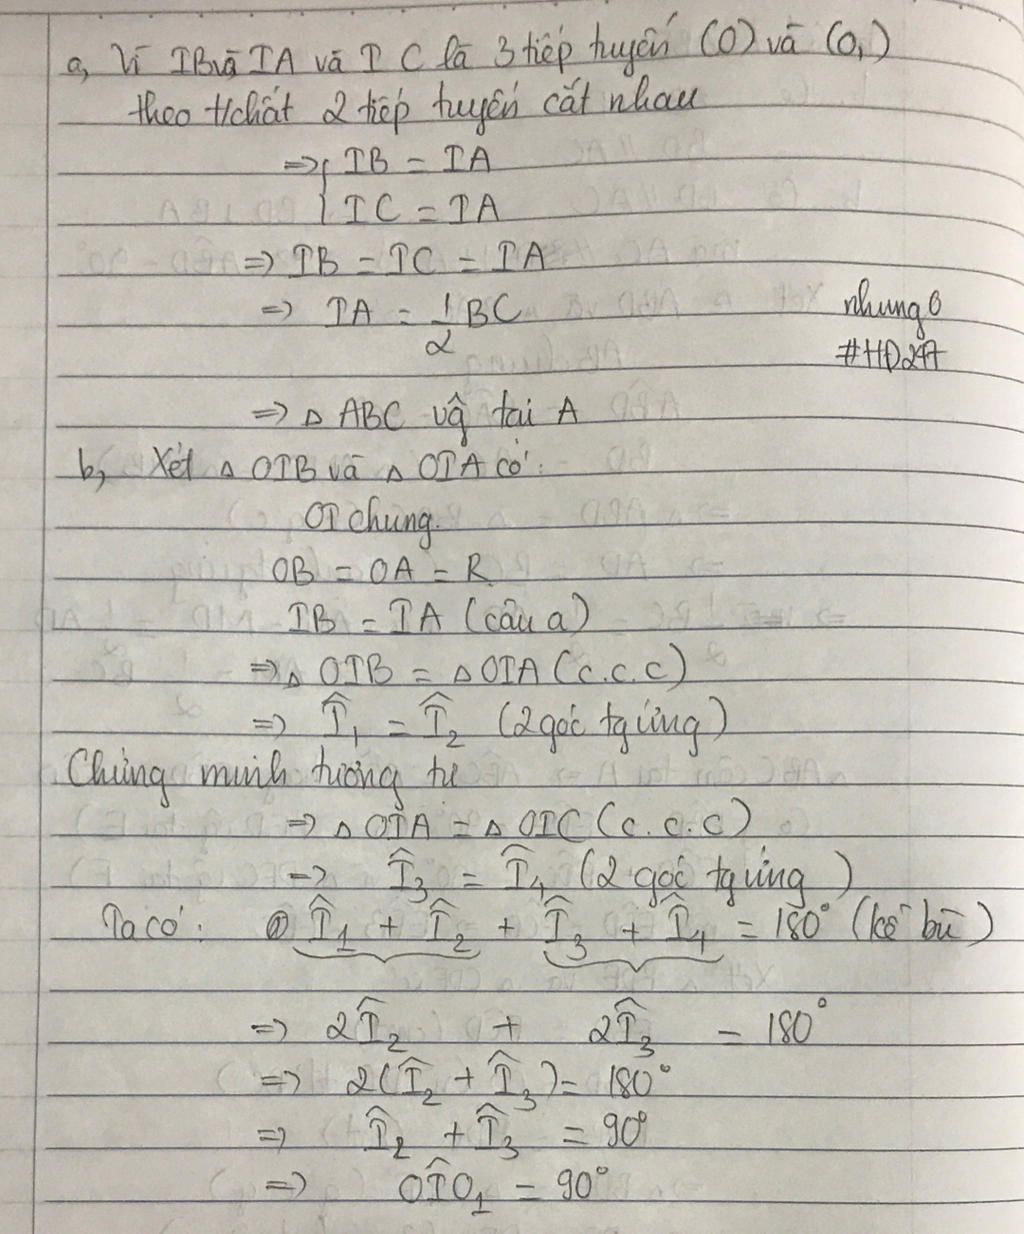 a, Vì IB và IA và IC là 3 tiếp tuyến (O) và (O₁)
theo t/chất 2 tiếp tuyến cắt nhau
=> { IB = IA
IC = IA
=> IB = IC = IA
=> IA = 1/2 BC
nhung0
#HĐ247
=> △ ABC vg tại A
b, Xét △ OIB và △ OIA có:
OI chung.
OB = OA = R
IB = IA (câu a)
=> △ OIB = △ OIA (c.c.c)
=> Î₁ = Î₂ (2 góc tg ứng)
Chứng minh tương tự
=> △ OIA = △ OIC (c.c.c)
=> Î₃ = Î₄ (2 góc tg ứng)
Ta có: Î₁ + Î₂ + Î₃ + Î₄ = 180° (kề bù)
=> 2Î₂ + 2Î₃ = 180°
=> 2(Î₂ + Î₃) = 180°
=> Î₂ + Î₃ = 90°
=> OÎO₁ = 90°